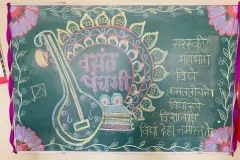 वसंत
पंचमी
सरस्वती
महाभागे
विद्ये
कमललोचने
विद्यारूपे
विशालाक्षि
विद्या देहि नमोस्तुते